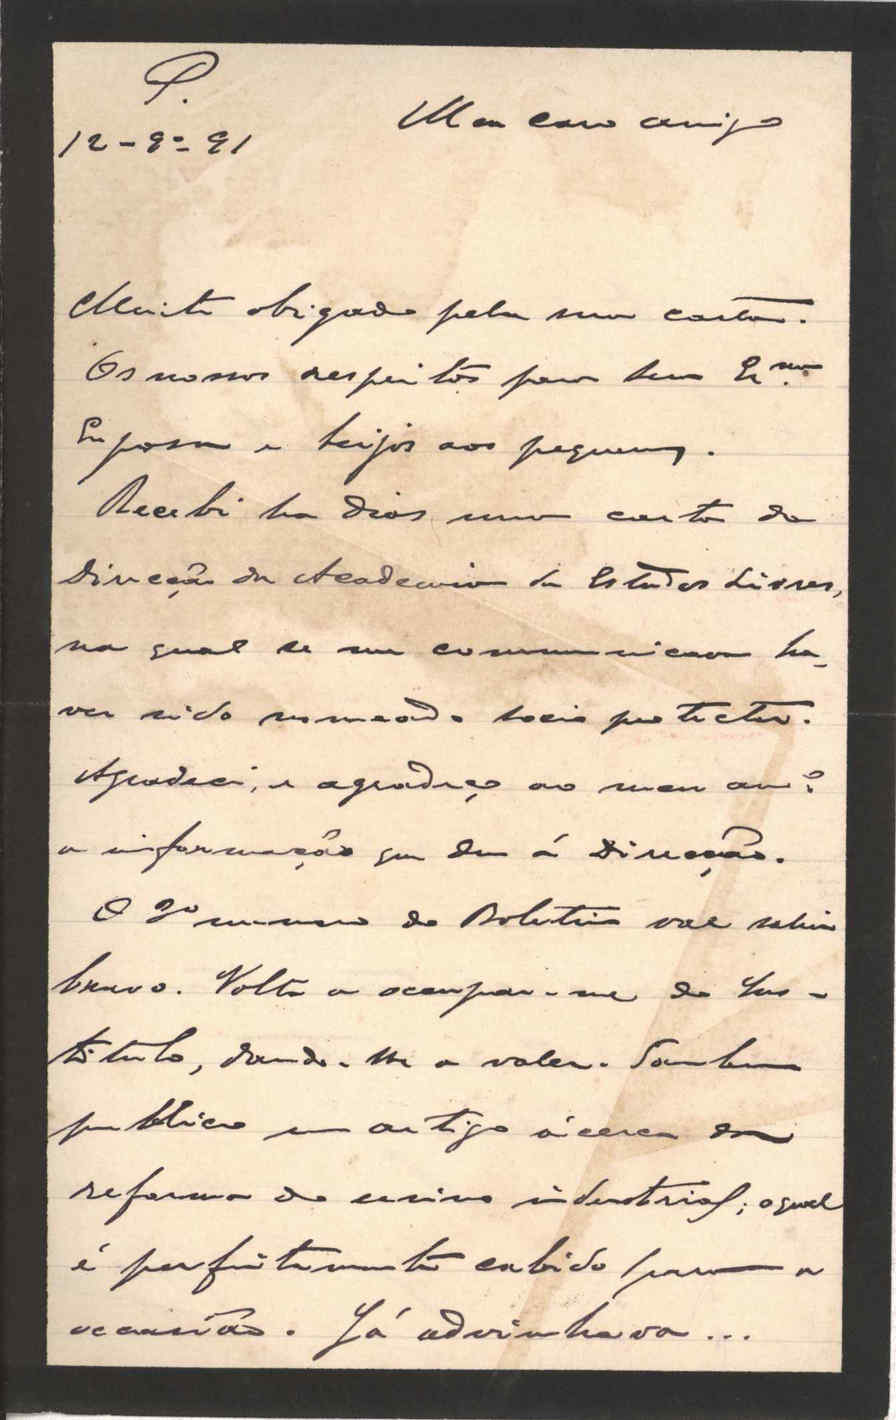 P.
12-9º-91
Meu caro amigo
Muito obrigado pela sua carta.
Os nossos respeitos para sua Exma
Esposa e beijos aos pequenos.
Recebi ha dias uma carta da
Direcção da Academia de Estudos Livres,
na qual se me communicava ha-
ver sido nomeado socio protector.
Agradeci, e agradeço ao meu amº
a informação que deu á Direcção.
O 2º numero do Boletim vae sahir
bravo. Volta a occupar-me do Ins-
tituto, dando-lhe a valer. Tambem
publico um artigo ácerca da
reforma do ensino industrial, o qual
é perfeitamente cabido para a
occasião. Já advinhava...